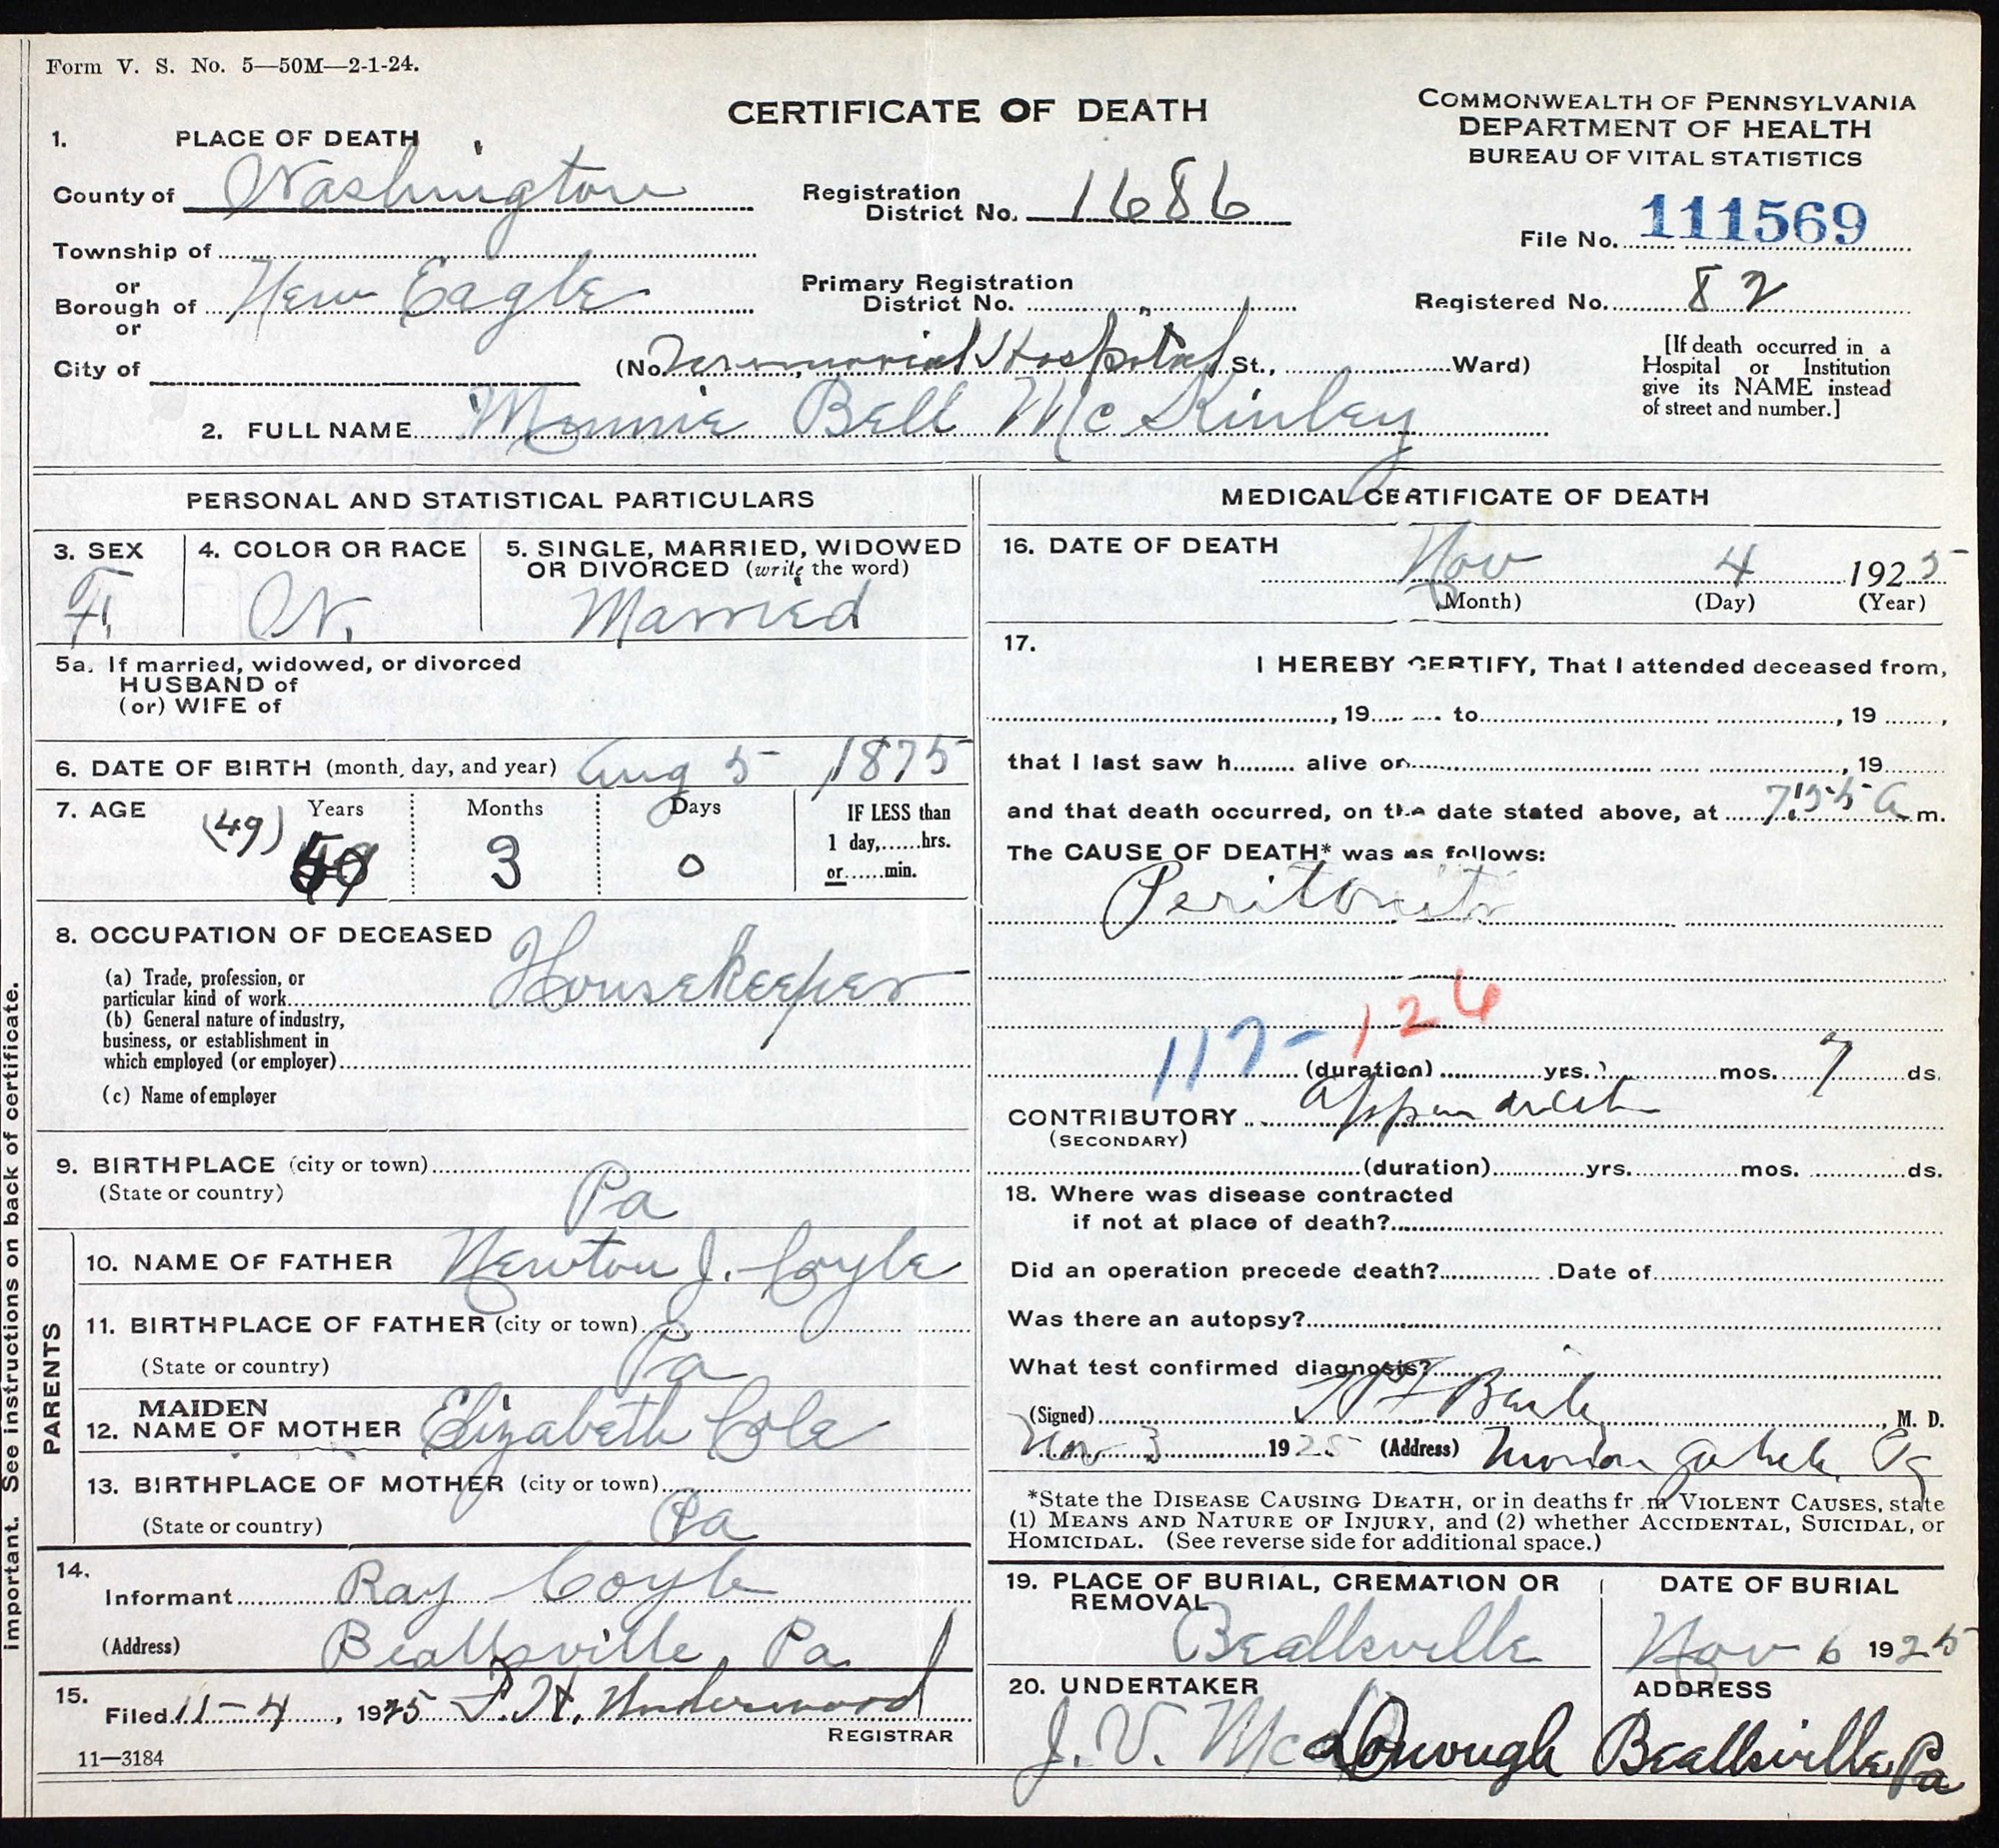 Form V. S. No. 5—50M—2-1-24.
CERTIFICATE OF DEATH
COMMONWEALTH OF PENNSYLVANIA
DEPARTMENT OF HEALTH
BUREAU OF VITAL STATISTICS
1. PLACE OF DEATH
County of Washington
Registration District No. 1686
File No. 111569
Township of
or
Borough of New Eagle
or
Primary Registration District No.
Registered No. 82
City of
(No. Memorial Hospital St., Ward)
[If death occurred in a
Hospital or Institution
give its NAME instead
of street and number.]
2. FULL NAME Minnie Bell McKinley
PERSONAL AND STATISTICAL PARTICULARS
3. SEX
F.
4. COLOR OR RACE
W.
5. SINGLE, MARRIED, WIDOWED
OR DIVORCED (write the word)
Married
5a. If married, widowed, or divorced
HUSBAND of
(or) WIFE of
6. DATE OF BIRTH (month, day, and year) Aug 5 1875
7. AGE
Years Months Days
(49) 50 3 0
IF LESS than
1 day,......hrs.
or......min.
8. OCCUPATION OF DECEASED
(a) Trade, profession, or
particular kind of work Housekeeper
(b) General nature of industry,
business, or establishment in
which employed (or employer)
(c) Name of employer
9. BIRTHPLACE (city or town)
(State or country) Pa
PARENTS
10. NAME OF FATHER Newton J. Coyle
11. BIRTHPLACE OF FATHER (city or town)
(State or country) Pa
12. MAIDEN NAME OF MOTHER Elizabeth Cole
13. BIRTHPLACE OF MOTHER (city or town)
(State or country) Pa
14.
Informant Ray Coyle
(Address) Beallsville, Pa
15.
Filed 11-4, 1925 P. H. Underwood
REGISTRAR
11—3184
important. See instructions on back of certificate.
MEDICAL CERTIFICATE OF DEATH
16. DATE OF DEATH
Nov 4 1925
(Month) (Day) (Year)
17.
I HEREBY CERTIFY, That I attended deceased from,
, 19 to , 19 ,
that I last saw h alive on , 19
and that death occurred, on the date stated above, at 7:55 A m.
The CAUSE OF DEATH* was as follows:
Peritonitis
117-126
(duration) yrs. mos. 7 ds.
CONTRIBUTORY Appendicitis
(SECONDARY)
(duration) yrs. mos. ds.
18. Where was disease contracted
if not at place of death?
Did an operation precede death? Date of
Was there an autopsy?
What test confirmed diagnosis?
(Signed) M. D.
Nov 3 1925 (Address) Monongahela Pa
*State the DISEASE CAUSING DEATH, or in deaths from VIOLENT CAUSES, state
(1) MEANS AND NATURE OF INJURY, and (2) whether ACCIDENTAL, SUICIDAL, or
HOMICIDAL. (See reverse side for additional space.)
19. PLACE OF BURIAL, CREMATION OR
REMOVAL
Beallsville
DATE OF BURIAL
Nov 6 1925
20. UNDERTAKER
J. V. McDonough
ADDRESS
Beallsville, Pa